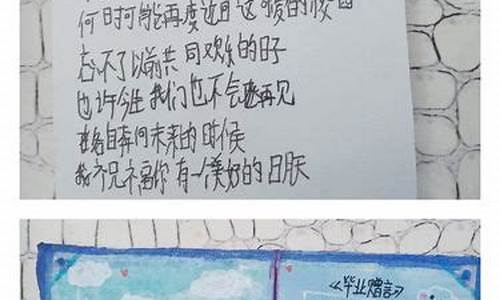 何时可能再度近日这可爱的校园
忘不了以前共同欢乐的日子
也许今生我们也不会再见
在各自奔向未来的时候
我祝福你有一个美好的日朕
《毕业赠言》